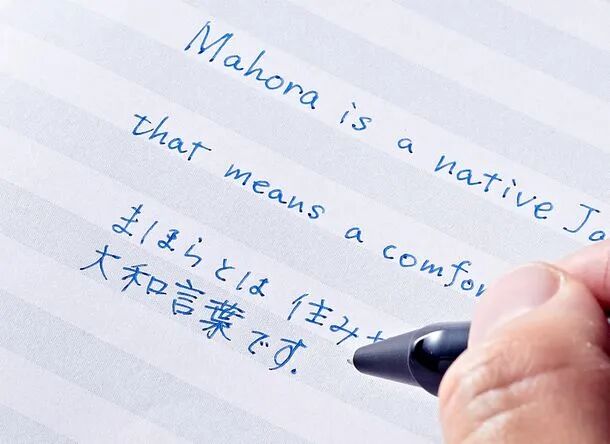 Mahora is a native Ja
that means a comfor
まほらとは 住み
大和言葉です.